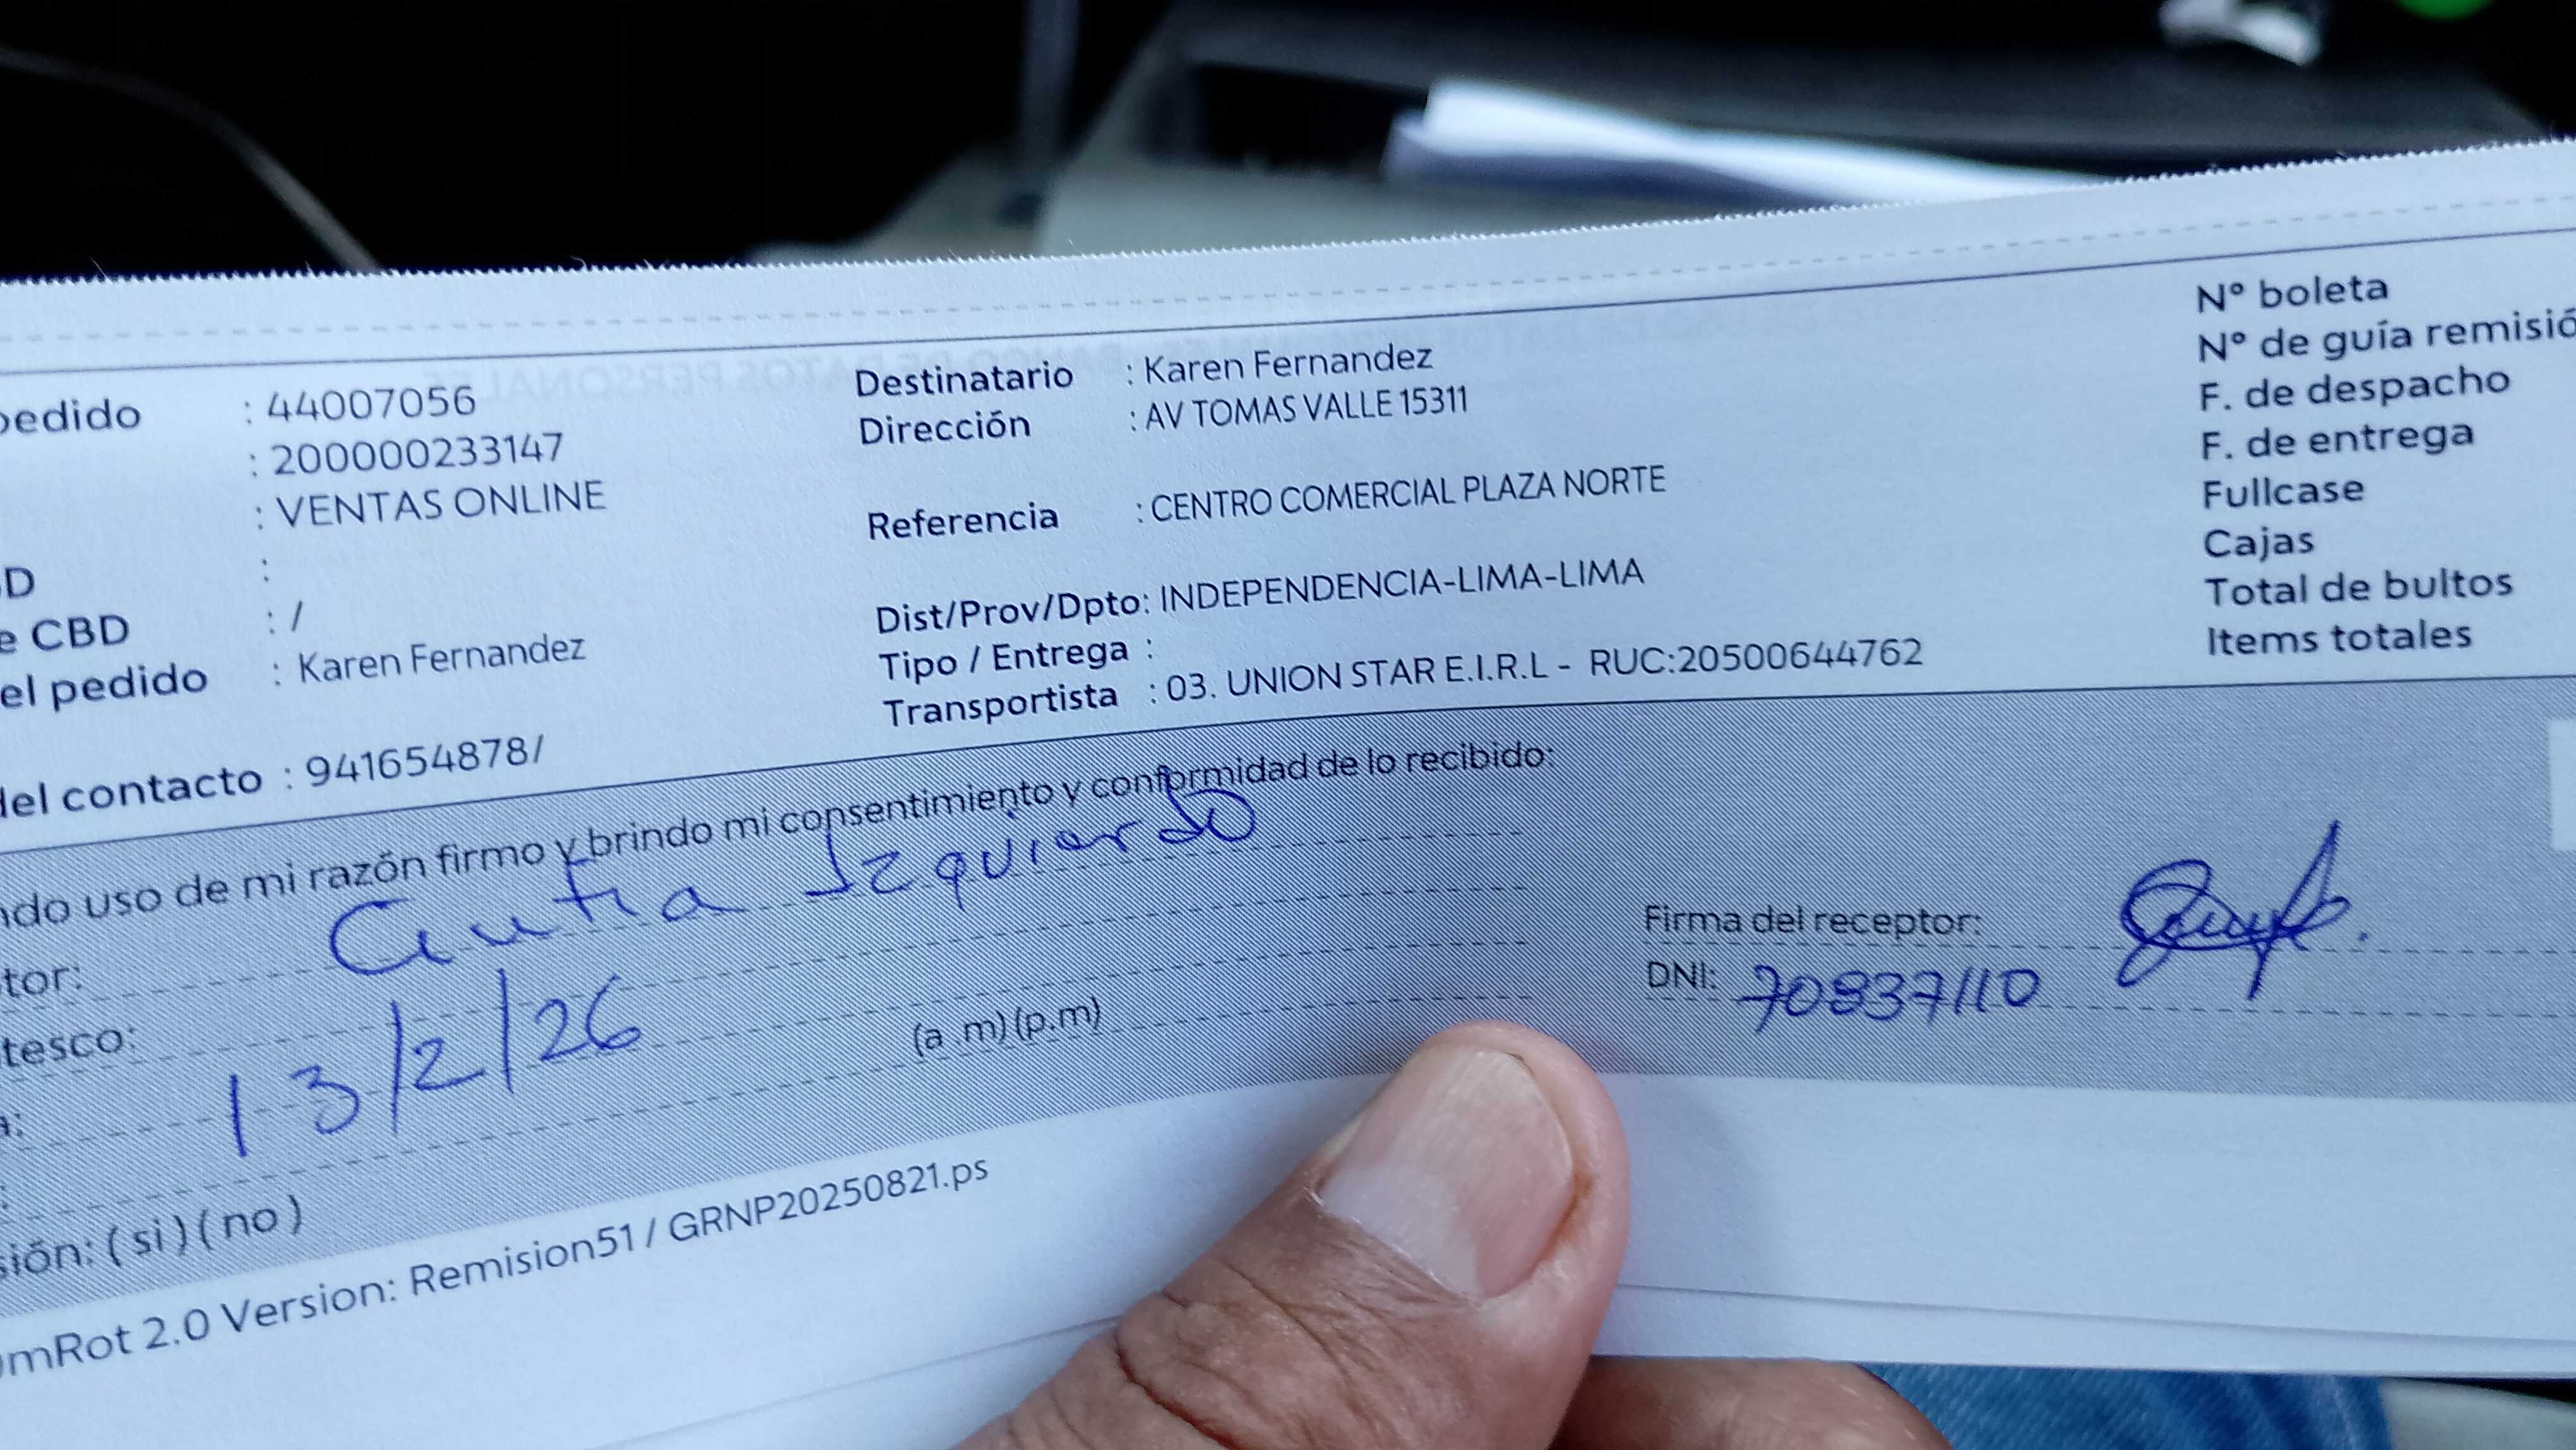 pedido : 44007056
: 200000233147
: VENTAS ONLINE
:
D
e CBD : /
el pedido : Karen Fernandez
del contacto : 941654878/
Destinatario : Karen Fernandez
Dirección : AV TOMAS VALLE 15311
Referencia : CENTRO COMERCIAL PLAZA NORTE
Dist/Prov/Dpto: INDEPENDENCIA-LIMA-LIMA
Tipo / Entrega :
Transportista : 03. UNION STAR E.I.R.L - RUC:20500644762
N° boleta
N° de guía remisió
F. de despacho
F. de entrega
Fullcase
Cajas
Total de bultos
Items totales
ndo uso de mi razón firmo y brindo mi consentimiento y conformidad de lo recibido:
tor: Izquierdo
tesco:
a: 13/2/26 (a .m) (p.m)
Firma del receptor:
DNI: 70837110
sión: ( si ) ( no )
mRot 2.0 Version: Remision51 / GRNP20250821.ps